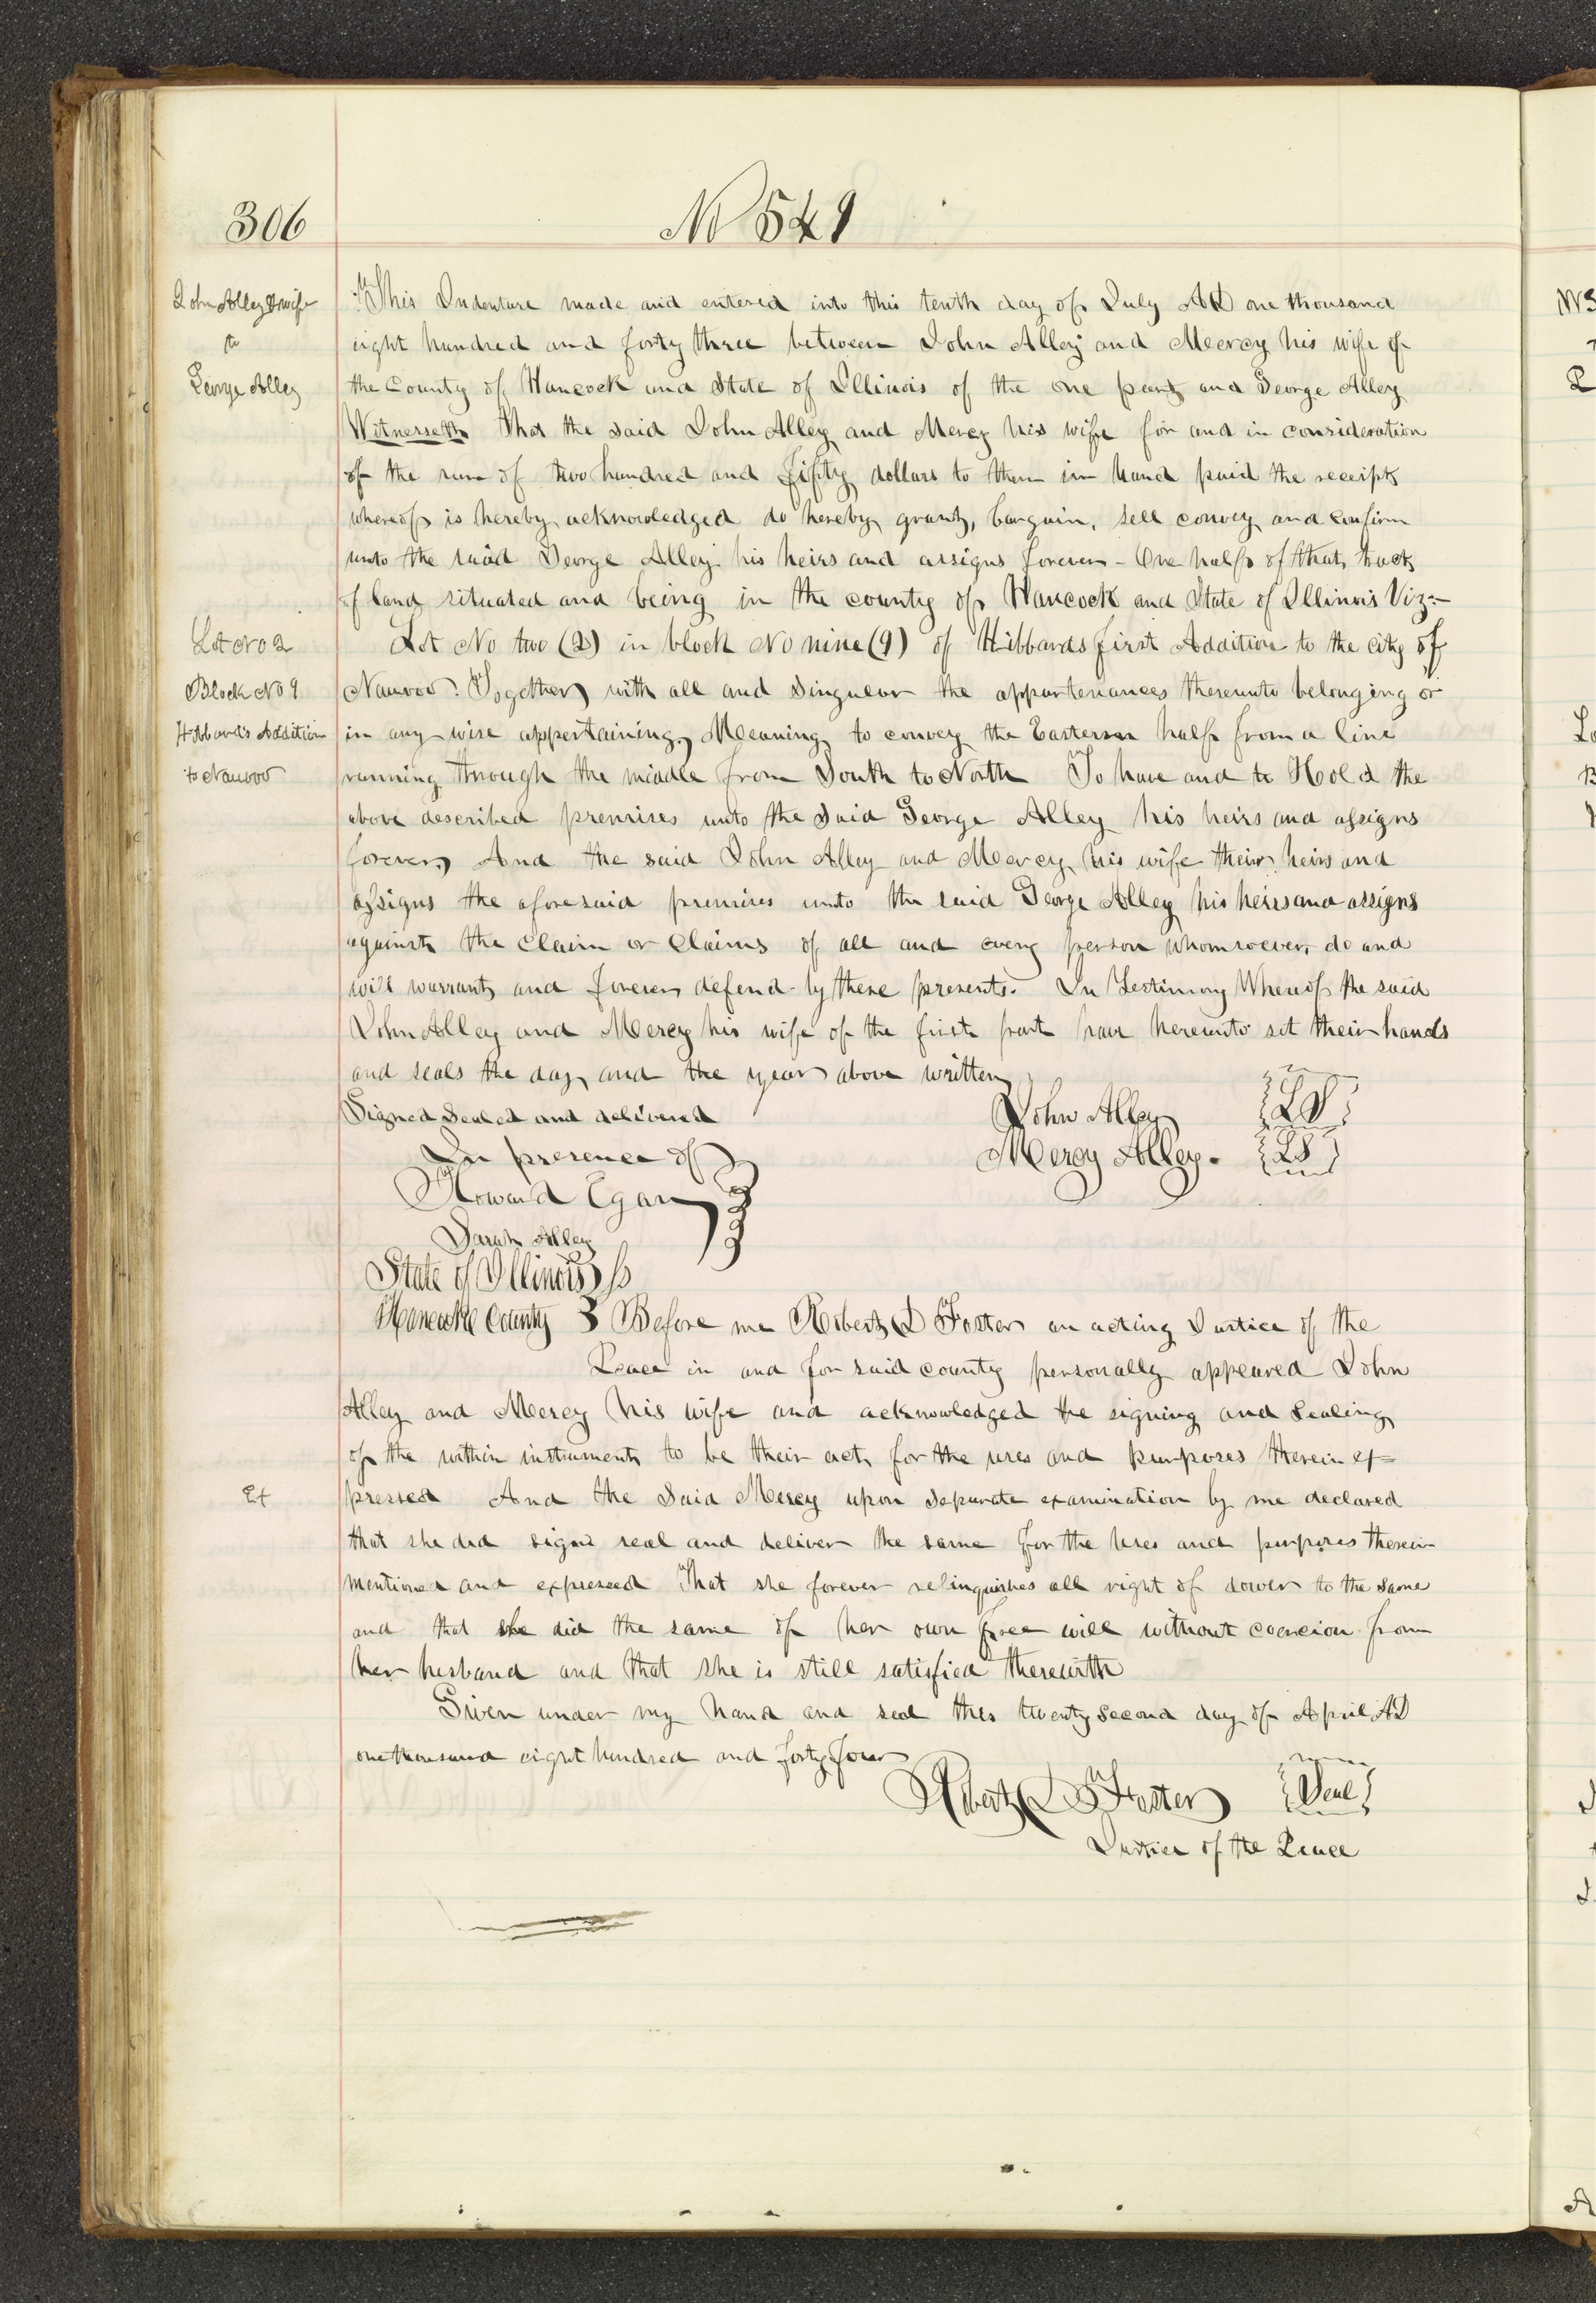 306
No 549
John Alley & wife
to
George Alley
This Indenture made and entered into this tenth day of July AD one thousand
eight hundred and forty three between John Alley and Meercy his wife of
the County of Hancock and State of Illinois of the one part and George Alley
Witnesseth That the said John Alley and Mercy his wife for and in consideration
of the sum of two hundred and fifty dollars to them in hand paid the receipt
whereof is hereby acknowledged do hereby grant, bargain, sell convey and confirm
unto the said George Alley his heirs and assigns forever - One half of that tract
of land situated and being in the county of Hancock and State of Illinois Viz:-
Lot No 2
Lot No two (2) in block No nine (9) of Hibbards first Addition to the city of
Block No 9
Nauvoo. Together with all and Singuear the appurtenances thereunto belonging or
Hibbards Addition
in any wise appertaining, Meeaning to convey the Eastern half from a line
to Nauvoo
running through the middle from South to North To have and to Hold the
above described premises unto the Said George Alley his heirs and assigns
forever, And the said John Alley and Meercy his wife their heirs and
assigns the aforesaid premises unto the said George Alley his heirs and assigns
against the Claim or Claims of all and every person whomsoever, do and
will warrant and forever defend by these presents. In Testimony Whereof the said
John Alley and Mercy his wife of the first part have hereunto set their hands
and seals the day and the year above written
Signed Sealed and delivered
In presence of
Howard Egan
Sarah Alley
John Alley LS
Mercy Alley. LS
State of Illinois ss
Hancock County Before me Robert D Foster an acting Justice of the
Peace in and for said county personally appeared John
Alley and Meercy his wife and acknowledged the signing and Sealing
of the within instrument to be their act, for the uses and purposes therein ex=
Ex
pressed And the Said Mercy upon Separate examination by me declared
that she did sign seal and deliver the same for the Uses and purposes therein
mentioned and expressed That she forever relinquishes all right of dower to the Same
and that she did the same of her own free will without coercion from
her husband and that she is still satisfied therewith
Given under my hand and seal this twenty Second day of April AD
one thousand eight hundred and forty four
Robert D Foster Seal
Justice of the Peace